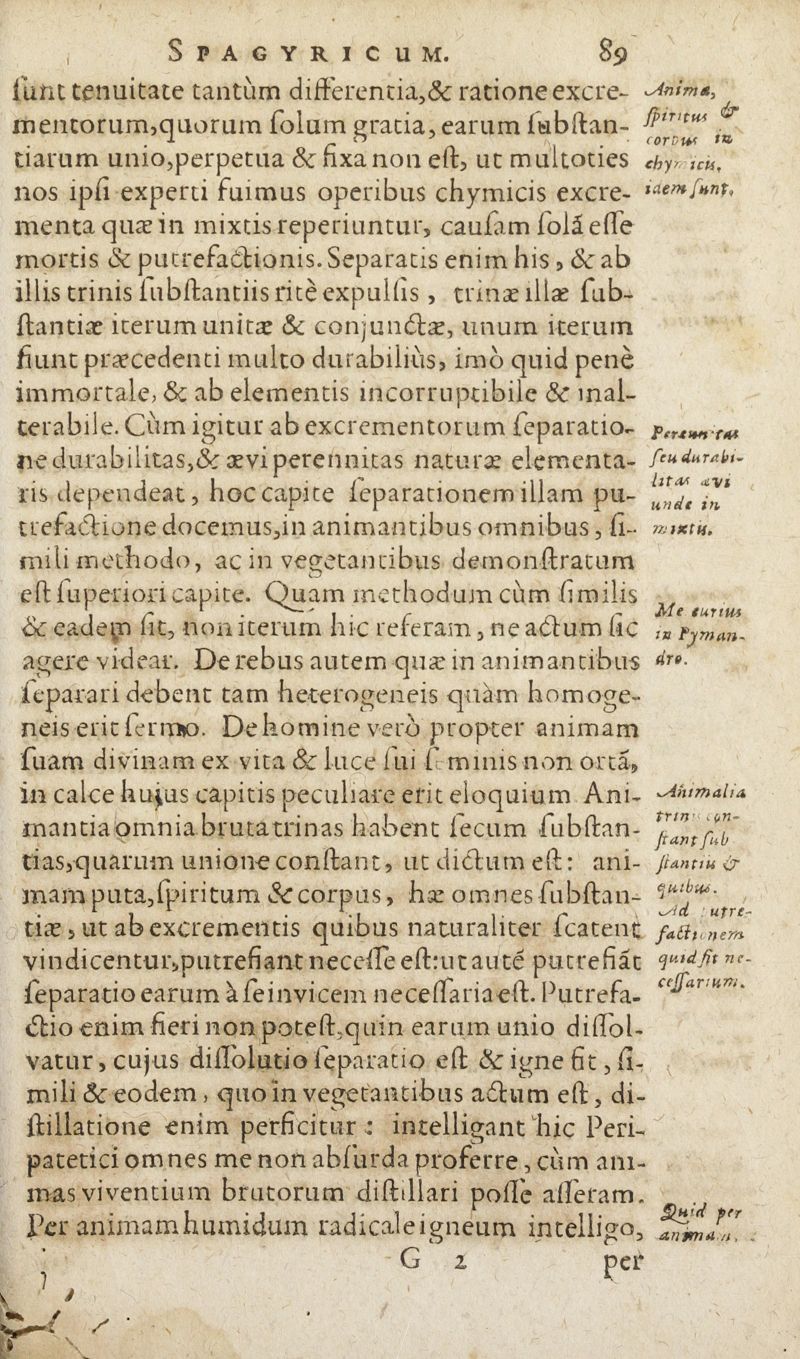 SPAGYRICUM. 89
ſunt tenuitate tantùm differentia,& ratione excre-
mentorum,quorum ſolum gratia, earum ſubſtan-
tiarum unio,perpetua & fixa non eſt, ut multoties
nos ipſi experti fuimus operibus chymicis excre-
menta quæ in mixtis reperiuntur, cauſam ſolã eſſe
mortis & putrefactionis. Separatis enim his, & ab
illis trinis ſubſtantiis ritè expulſis, trinæ illæ ſub-
ſtantiæ iterum unitæ & conjunctæ, unum iterum
fiunt præcedenti multo durabiliùs, imò quid penè
immortale, & ab elementis incorruptibile & inal-
terabile. Cùm igitur ab excrementorum ſeparatio-
ne durabilitas,& ævi perennitas naturæ elementa-
ris dependeat, hoc capite ſeparationem illam pu-
trefactione docemus,in animantibus omnibus, ſi-
mili methodo, ac in vegetantibus demonſtratum
eſt ſuperiori capite. Quam methodum cùm ſimilis
& eadem ſit, non iterum hic referam, ne actum ſic
agere videar. De rebus autem quæ in animantibus
ſeparari debent tam heterogeneis quàm homoge-
neis erit ſermo. De homine verò propter animam
ſuam divinam ex vita & luce ſui ſeminis non ortã,
in calce hujus capitis peculiare erit eloquium. Ani-
mantia omnia bruta trinas habent ſecum ſubſtan-
tias,quarum unione conſtant, ut dictum eſt: ani-
mam puta,ſpiritum & corpus, hæ omnes ſubſtan-
tiæ, ut ab excrementis quibus naturaliter ſcatent
vindicentur,putrefiant neceſſe eſt:ut autẽ putrefiãt
ſeparatio earum à ſeinvicem neceſſaria eſt. Putrefa-
ctio enim fieri non poteſt,quin earum unio diſſol-
vatur, cujus diſſolutio ſeparatio eſt & igne fit, ſi-
mili & eodem, quo in vegetantibus actum eſt, di-
ſtillatione enim perficitur: intelligant hic Peri-
patetici omnes me non abſurda proferre, cùm ani-
mas viventium brutorum diſtillari poſſe aſſeram.
Per animam humidum radicale igneum intelligo,
G 2 per
Anima,
ſpiritus &
corpus in
chymicis,
idem ſunt.
Perennitas
ſeu durabi-
litas ævi
unde in
mixtis.
in Pyman-
dro.
Animalia
trinis con-
ſtant ſub
ſtantiis &
quibus.
Ad putre-
factionem
quid ſit ne-
ceſſarium.
Quid per